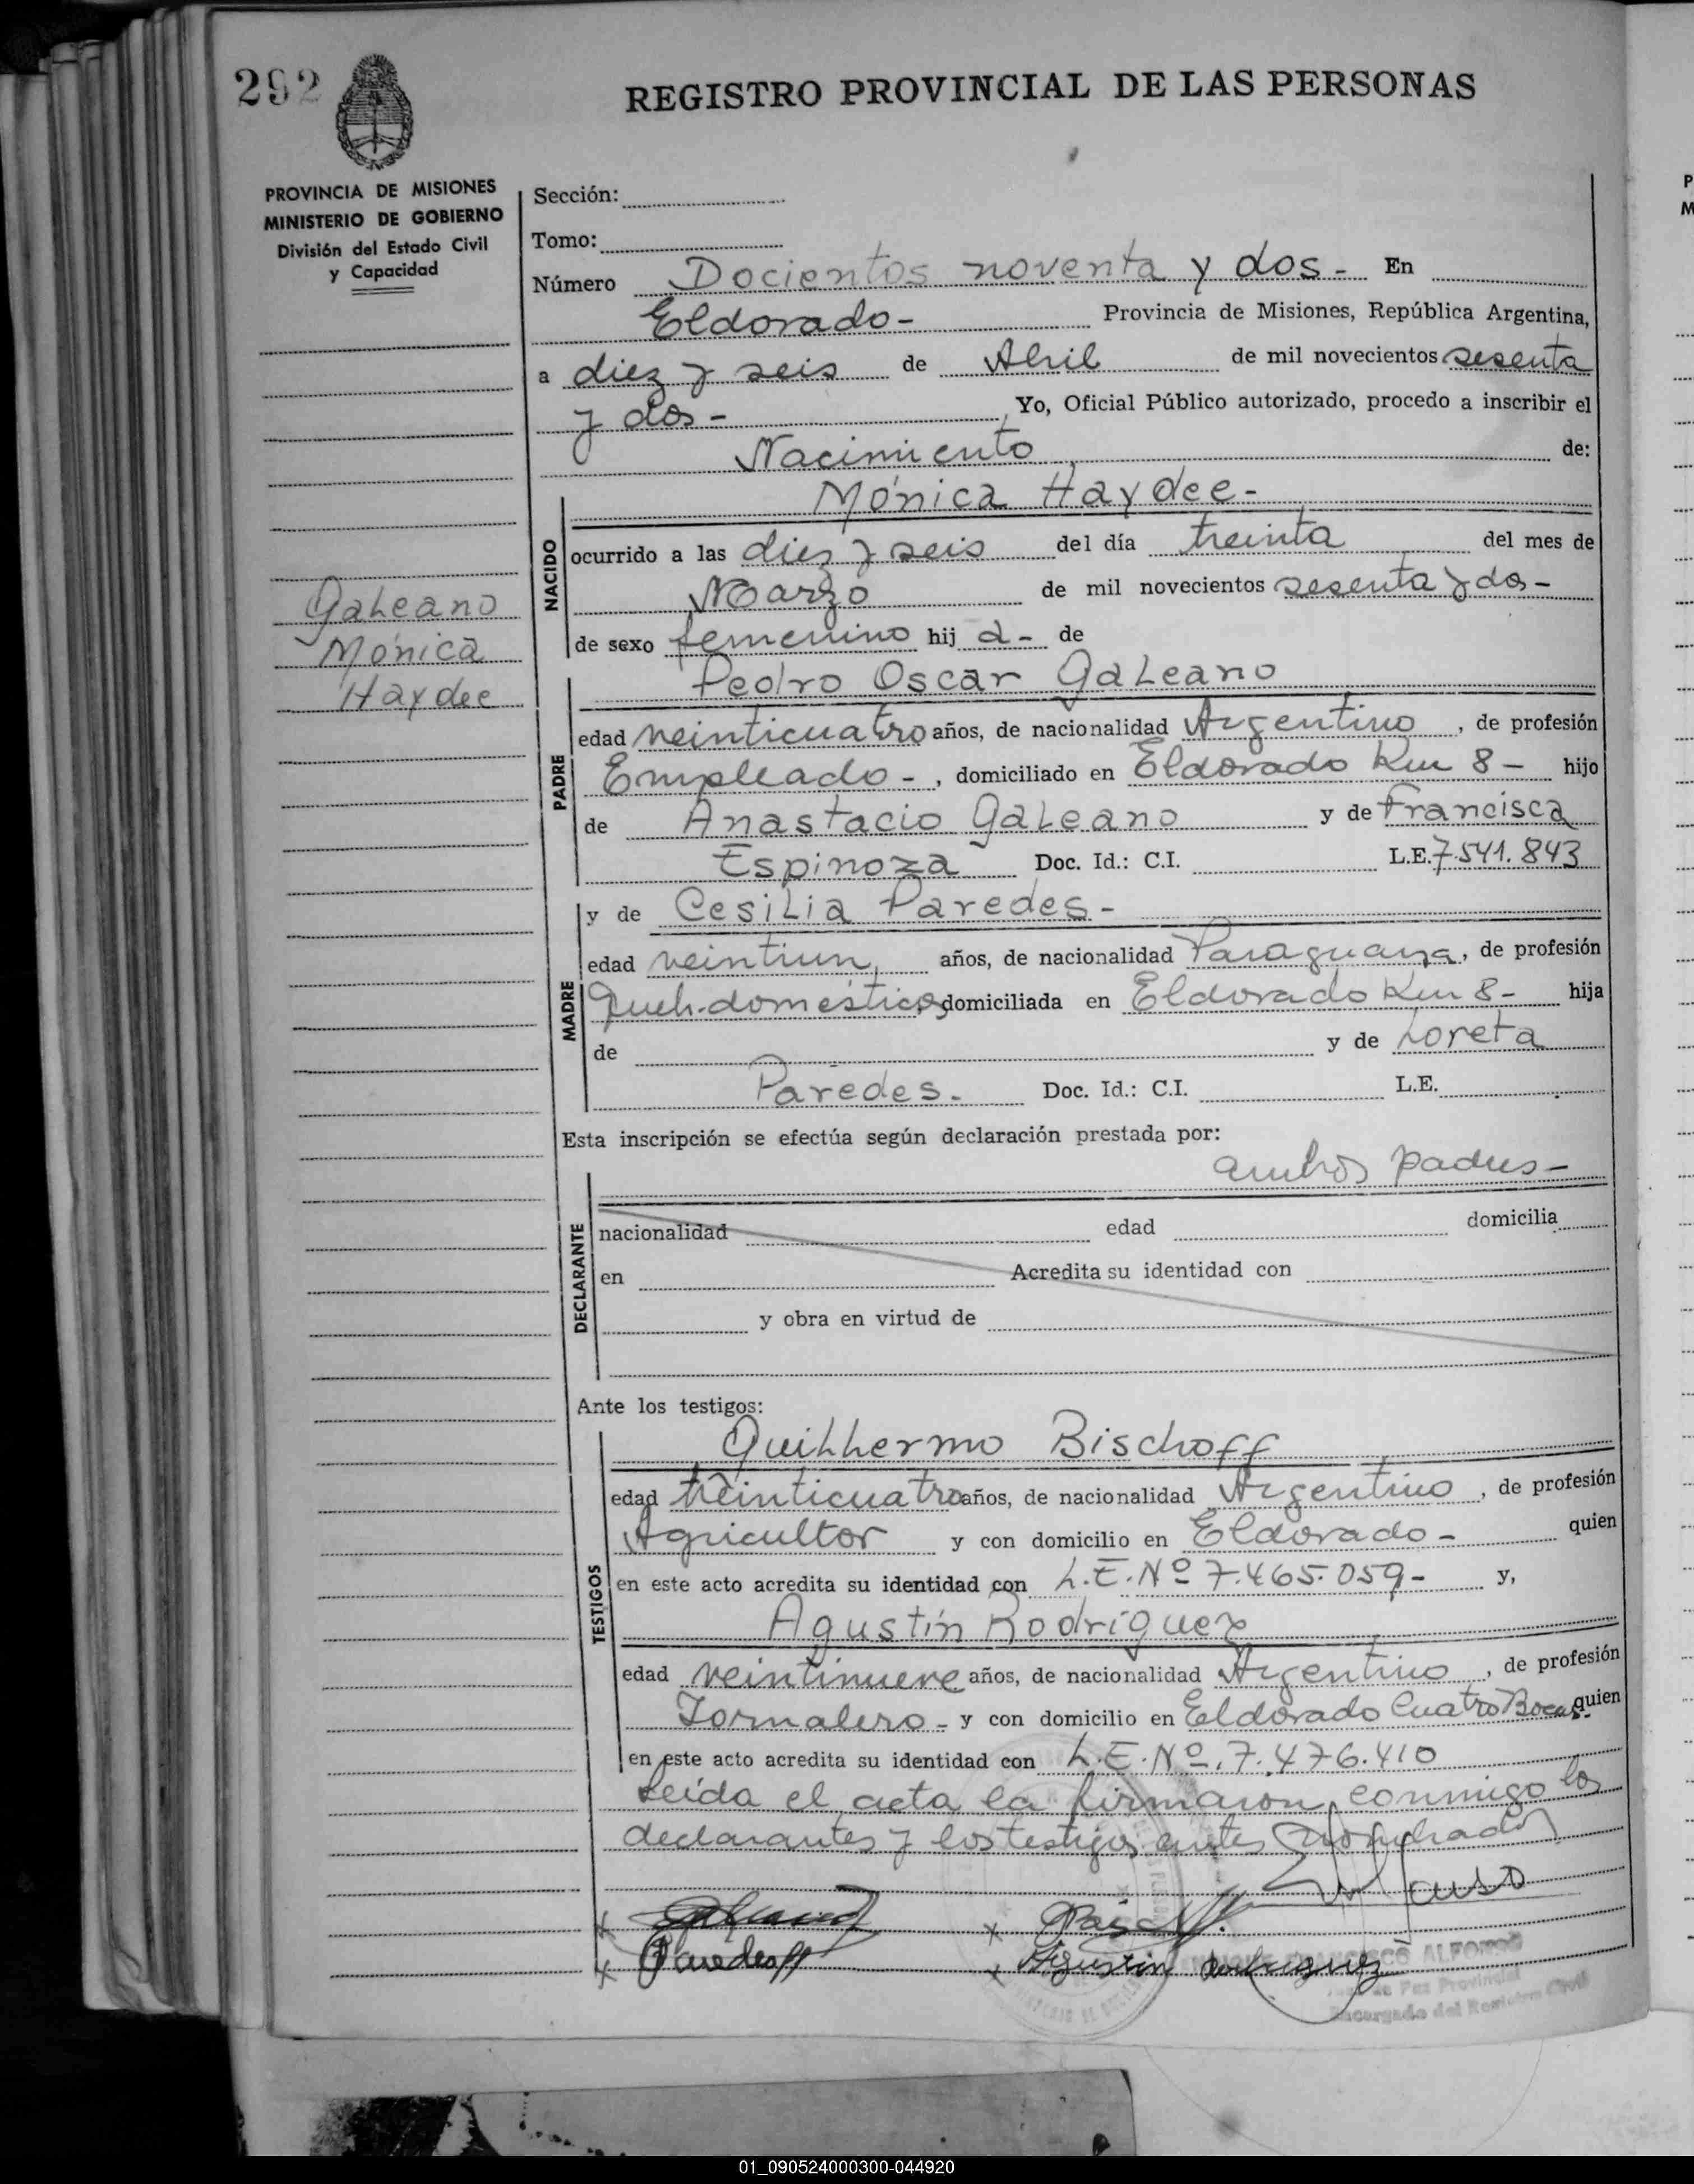 292
REGISTRO PROVINCIAL DE LAS PERSONAS
PROVINCIA DE MISIONES
MINISTERIO DE GOBIERNO
División del Estado Civil
y Capacidad
Galeano
Mónica
Haydee
Sección:
Tomo:
Número Docientos noventa y dos - En
Eldorado - Provincia de Misiones, República Argentina,
a diez y seis de Abril de mil novecientos sesenta
y dos - Yo, Oficial Público autorizado, procedo a inscribir el
Nacimiento de:
NACIDO
Mónica Haydee -
ocurrido a las diez y seis del día treinta del mes de
Marzo de mil novecientos sesenta y dos -
de sexo femenino hij a - de
PADRE
Pedro Oscar Galeano
edad veinticuatro años, de nacionalidad Argentino, de profesión
Empleado -, domiciliado en Eldorado Km 8 - hijo
de Anastacio Galeano y de Francisca
Espinoza Doc. Id.: C.I. L.E. 7.541.843
MADRE
y de Cesilia Paredes -
edad veintiun años, de nacionalidad Paraguaya, de profesión
domiciliada en Eldorado Km 8 - hija
de y de Loreta
Paredes. Doc. Id.: C.I. L.E.
Esta inscripción se efectúa según declaración prestada por:
ambos padres -
DECLARANTE
nacionalidad edad domicilia
en Acredita su identidad con
y obra en virtud de
Ante los testigos:
TESTIGOS
Guillermo Bischoff
edad años, de nacionalidad Argentino, de profesión
Agricultor y con domicilio en Eldorado - quien
en este acto acredita su identidad con L.E. Nº 7.465.059 - y,
Agustín Rodríguez
edad veintinueve años, de nacionalidad Argentino, de profesión
Jornalero - y con domicilio en Eldorado Cuatro Bocas - quien
en este acto acredita su identidad con L.E. Nº. 7.476.410
Leída el acta la firmaron conmigo los
declarantes y los testigos antes
Paredes
Agustin Rodriguez
FRANCISCO ALFONSO
de Paz Provincial
Encargado del Registro Civil
01_090524000300-044920